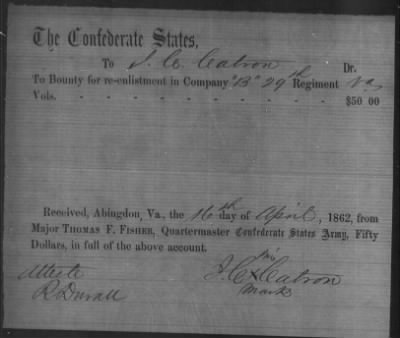 The Confederate States,
To J. C. Catron Dr.
To Bounty for re-enlistment in Company "B" 29th Regiment Va
Vols. - - - - - - - - - $50 00
Received, Abingdon, Va., the 16th day of April, 1862, from
Major Thomas F. Fisher, Quartermaster Confederate States Army, Fifty
Dollars, in full of the above account.
Atteste
R Duvall
his
J. C. X Catron
Mark